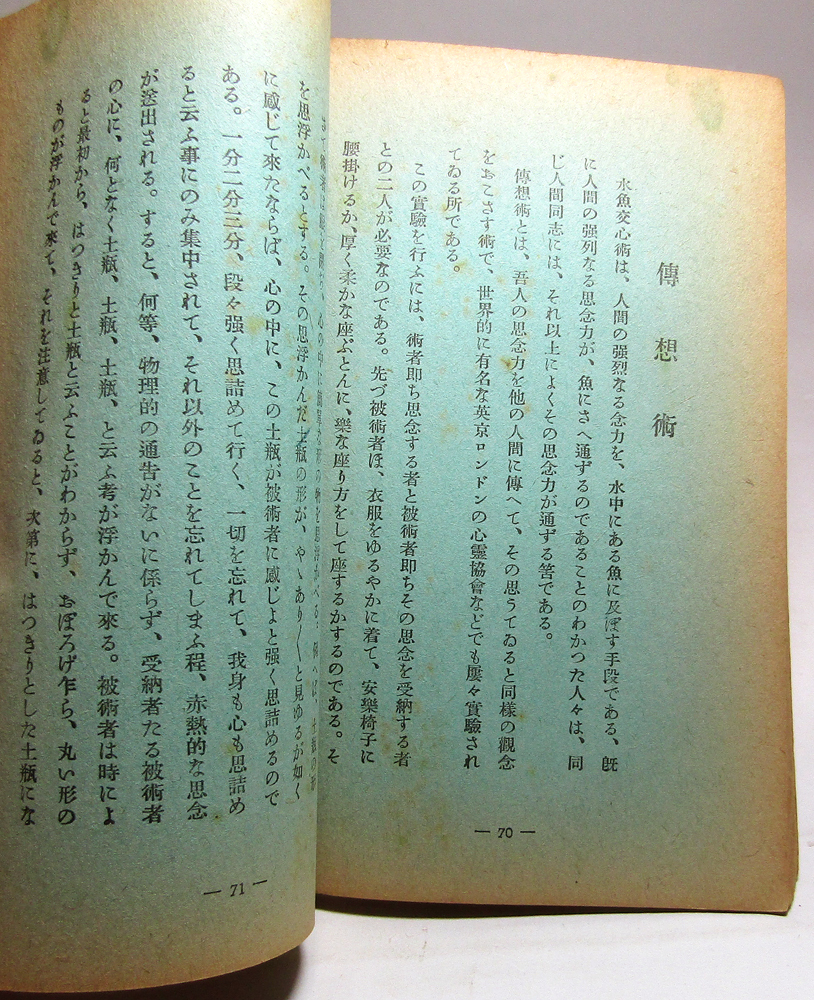 傳想術
水魚交心術は、人間の强烈なる念力を、水中にある魚に及ぼす手段である、旣
に人間の强列なる思念力が、魚にさへ通ずるのであることのわかつた人々は、同
じ人間同志には、それ以上によくその思念力が通ずる筈である。
傳想術とは、吾人の思念力を他の人間に傳へて、その思うてゐると同樣の觀念
をおこさす術で、世界的に有名な英京ロンドンの心靈協會などでも屢々實驗され
てゐる所である。
この實驗を行ふには、術者卽ち思念する者と被術者卽ちその思念を受納する者
との二人が必要なのである。先づ被術者は、衣服をゆるやかに着て、安樂椅子に
腰掛けるか、厚く柔かな座ぶとんに、樂な座り方をして座するかするのである。そ
— 70 —
を思浮かべるとする。その思浮かんだ土瓶の形が、やゝあり〱と見ゆるが如く
に感じて來たならば、心の中に、この土瓶が被術者に感じよと强く思詰めるので
ある。一分二分三分、段々强く思詰めて行く、一切を忘れて、我身も心も思詰め
ると云ふ事にのみ集中されて、それ以外のことを忘れてしまふ程、赤熱的な思念
が送出される。すると、何等、物理的の通告がないに係らず、受納者たる被術者
の心に、何となく土瓶、土瓶、土瓶、と云ふ考が浮かんで來る。被術者は時によ
ると最初から、はつきりと土瓶と云ふことがわからず、おぼろげ乍ら、丸い形の
ものが浮かんで來て、それを注意してゐると、次第に、はつきりとした土瓶にな
— 71 —